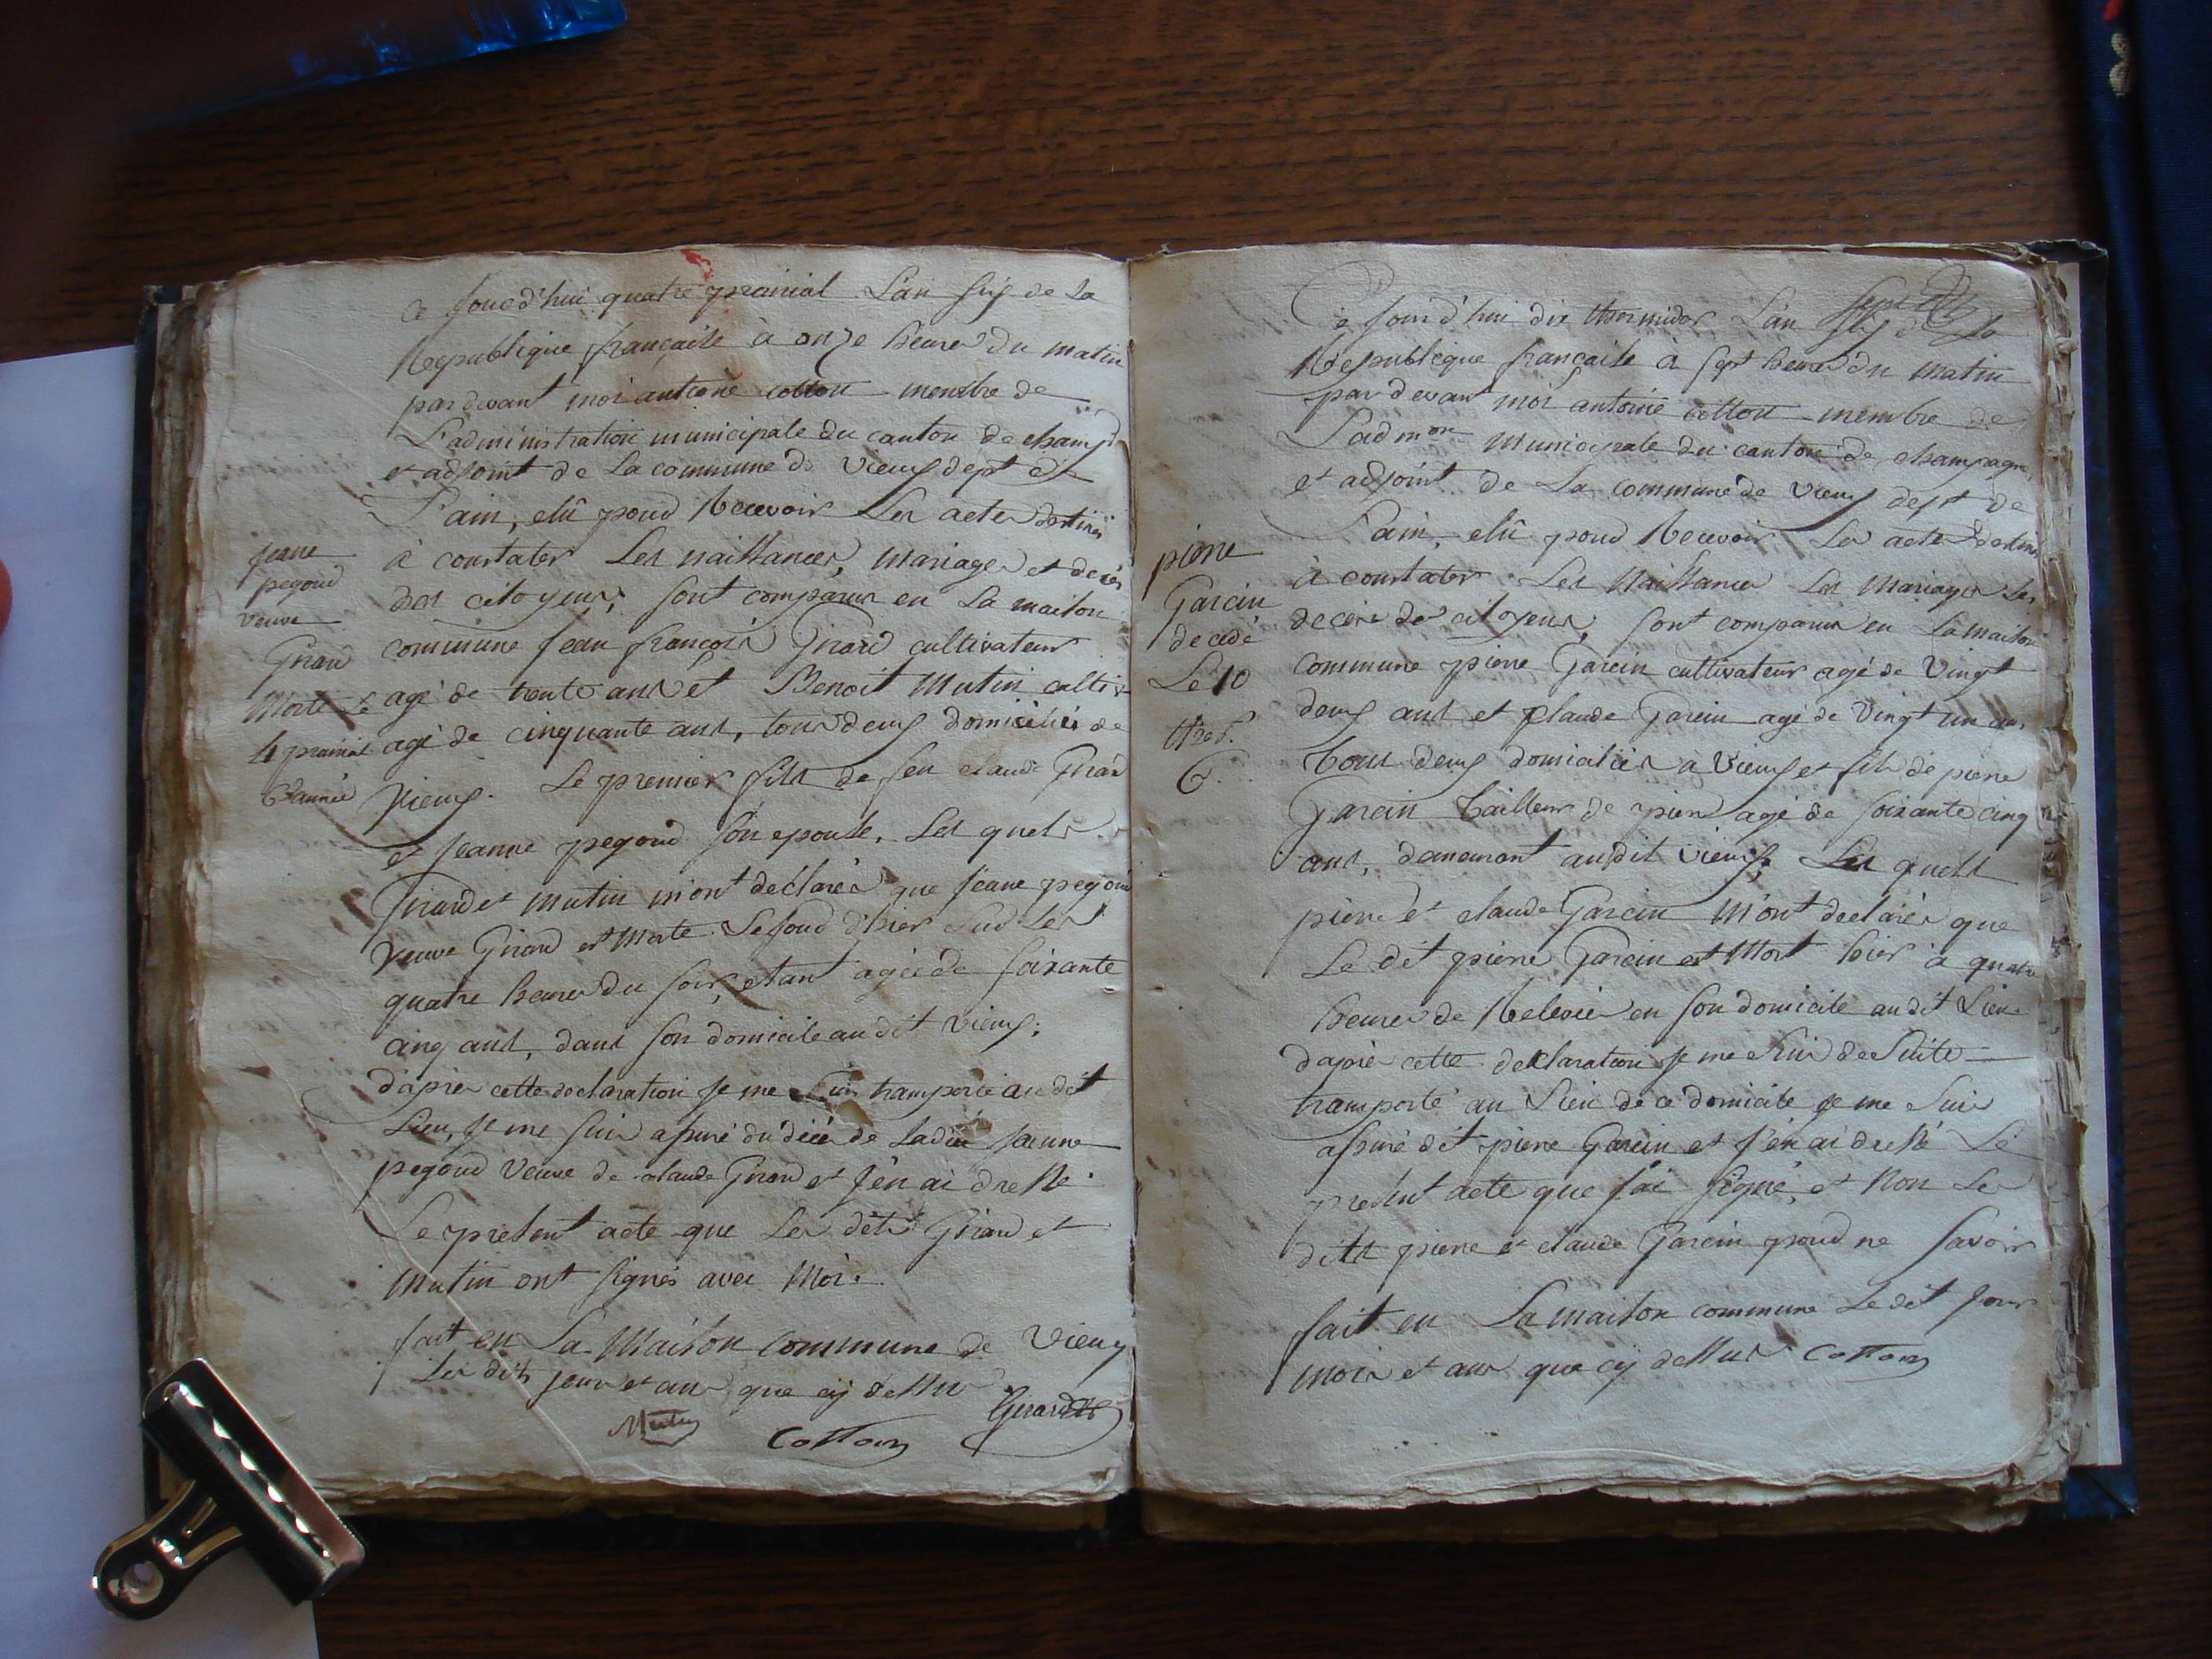 Ce Jourd'hui quatre prairial L'an six de la
Republique françaisse à onze heure du matin
pardevant moi antione cotton membre de
L'administration municipale du canton de champ
et adjoint de La commune de vieux dept de
L'ain, elû pour Recevoir Les actes destinés
à constater Les naissances, mariages et decès
des citoyens; sont comparus en La maison
commune Jean françois Girard cultivateur
agé de trente ans et Benoit Mutin cultiv
agé de cinquante ans, tous deux domiciliés de
vieux. Le premier fils de feu claude Girard
et Jeanne pegoud son epouse. Les quels
Girard et Mutin m'ont declarés que Jeane pegoud
veuve Girard est Morte Le Jour d'hier sur Les
quatre heures du soir, etant agée de soixante
cinq ans, dans son domicile au dit vieux;
d'après cette declaration Je me suis transporté au dit
Lieu, Je me suis assuré du décè de Ladite Jeanne
pegoud veuve de claude Girard et J'en ai dressé
Le present acte que Les dits Girard et
Mutin ont signés avec Moi.
fait en La Maison commune de vieux
Les dits jour et an que cy dessus
Mutin Cotton Girard
Jeane
pegoud
veuve
Girard
Morte Le
4 prairial
6e année
Ce Jourd'hui dix thermidor L'an six de la
Republique française à sept heures du matin
pardevant moi antoine cotton membre de
L'admon Municipale du canton de champagne,
et adjoint de La commune de vieux dept de
L'ain, elû pour Recevoir Les actes destinés
à constater Les Naissances Les Mariages Les
decès des citoyens, sont comparus en La maison
commune pierre Garcin cultivateur agé de vingt
deux ans et claude Garcin agé de vingt un ans
tous deux domiciliés à vieux et fils de pierre
Garcin tailleur de pierre agé de soixante cinq
ans, demeurant audit vieux, Les quels
pierre et claude Garcin M'ont declarés que
Le dit pierre Garcin est Mort hier à quatre
heures de Relevée en son domicile audit Lieu
d'après cette declaration Je me suis de suite
transporté au Lieu de ce domicile je me suis
assuré dit pierre Garcin et J'en ai dressé Le
present acte que J'ai signé, et Non Les
dits pierre et claude Garcin pour ne savoir
fait en La maison commune Le dit Jour
mois et ans que cy dessus Cotton
pierre
Garcin
decédé
Le 10
ther.
6.